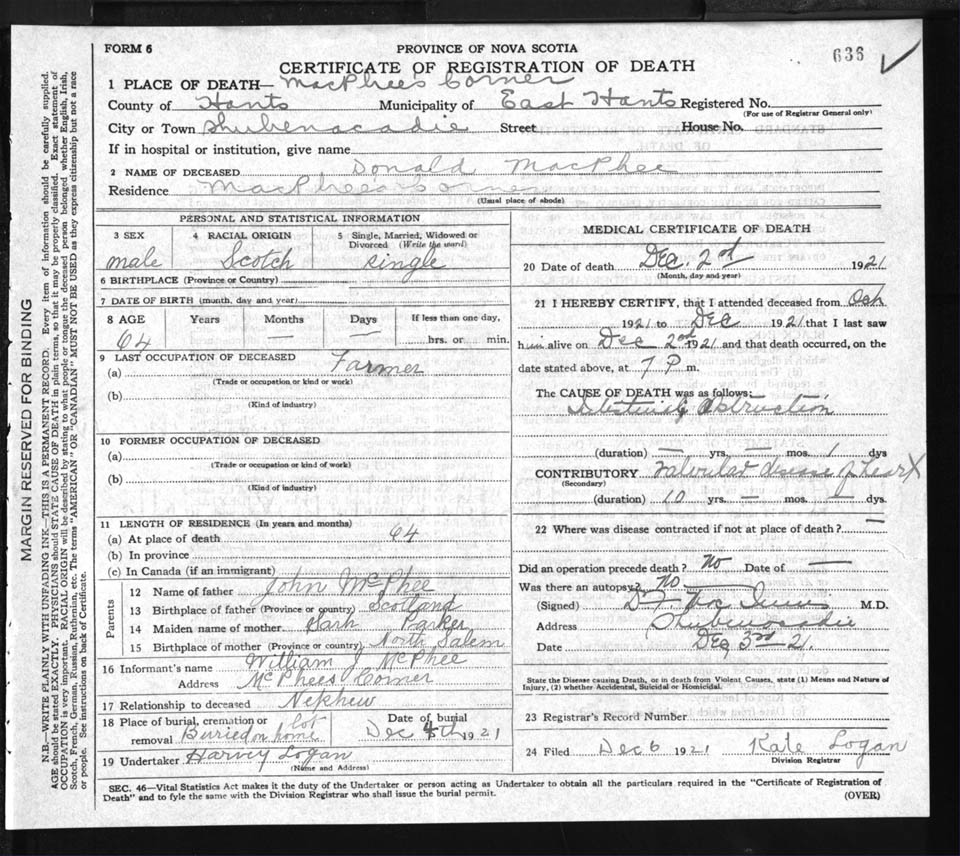 FORM 6
PROVINCE OF NOVA SCOTIA
636
CERTIFICATE OF REGISTRATION OF DEATH
1 PLACE OF DEATH— MacPhee's Corner
County of Hants Municipality of East Hants Registered No.
(For use of Registrar General only)
City or Town Shubenacadie Street House No.
If in hospital or institution, give name
2 NAME OF DECEASED Donald MacPhee
Residence MacPhee's Corner
(Usual place of abode)
PERSONAL AND STATISTICAL INFORMATION
3 SEX 4 RACIAL ORIGIN 5 Single, Married, Widowed or Divorced (Write the word)
male Scotch single
6 BIRTHPLACE (Province or Country)
7 DATE OF BIRTH (month, day and year)
8 AGE Years Months Days If less than one day,
64 — — hrs. or min.
9 LAST OCCUPATION OF DECEASED
(a) Farmer
(Trade or occupation or kind or work)
(b)
(Kind of industry)
10 FORMER OCCUPATION OF DECEASED
(a)
(Trade or occupation or kind of work)
(b)
(Kind of industry)
11 LENGTH OF RESIDENCE (In years and months)
(a) At place of death 64
(b) In province
(c) In Canada (if an immigrant)
Parents
12 Name of father John McPhee
13 Birthplace of father (Province or country) Scotland
14 Maiden name of mother Sarh Parker
15 Birthplace of mother (Province or country) North Salem
16 Informant's name William J McPhee
Address McPhees Corner
17 Relationship to deceased Nephew
18 Place of burial, cremation or removal Buried on home lot Date of burial Dec 4th 1921
19 Undertaker Harvey Logan
(Name and Address)
MEDICAL CERTIFICATE OF DEATH
20 Date of death Dec. 2nd 1921
(Month, day and year)
21 I HEREBY CERTIFY, that I attended deceased from
1921 to Dec 1921 that I last saw
him alive on Dec 2nd 1921 and that death occurred, on the
date stated above, at 7 P m.
The CAUSE OF DEATH was as follows:
Intestinal Obstruction
(duration) — yrs. — mos. 1 dys
CONTRIBUTORY Valvular disease of heart
(Secondary)
(duration) 10 yrs. — mos. — dys.
22 Where was disease contracted if not at place of death? —
Did an operation precede death? No Date of —
Was there an autopsy? No
(Signed) M.D.
Address Shubenacadie
Date Dec 3rd 21.
State the Disease causing Death, or in death from Violent Causes, state (1) Means and Nature of
Injury, (2) whether Accidental, Suicidal or Homicidal.
23 Registrar's Record Number
24 Filed Dec 6 1921 Kate Logan
Division Registrar
SEC. 46—Vital Statistics Act makes it the duty of the Undertaker or person acting as Undertaker to obtain all the particulars required in the "Certificate of Registration of
Death" and to fyle the same with the Division Registrar who shall issue the burial permit.
(OVER)
MARGIN RESERVED FOR BINDING
N.B.—WRITE PLAINLY WITH UNFADING INK—THIS IS A PERMANENT RECORD. Every item of information should be carefully supplied.
AGE should be stated EXACTLY. PHYSICIANS should STATE CAUSE OF DEATH in plain terms, so that it may be properly classified. Exact statement of
OCCUPATION is very important. RACIAL ORIGIN will be described by stating to what people or tongue the deceased person belonged whether English, Irish,
Scotch, French, German, Russian, Ruthenian, etc. The terms "AMERICAN" OR "CANADIAN" MUST NOT BE USED as they express citizenship but not a race
or people. See instructions on back of Certificate.